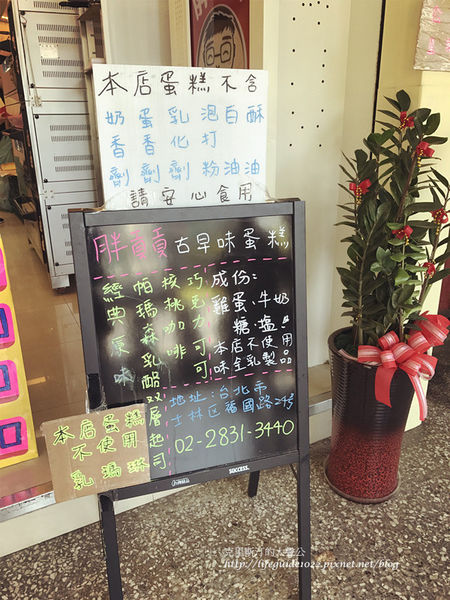 本店蛋糕不含
奶香劑
蛋香劑
乳化劑
泡打粉
白油
酥油
請安心食用
胖真真古早味蛋糕
經典原味
帕瑪森乳酪
雙層起司
核桃咖啡
巧克力可可
成份:
雞蛋、牛奶
糖、鹽!
本店不使用
味全乳製品
地址:台北市
士林区福國路24号
02-2831-3440
本店蛋糕
不使用
乳瑪琳
SUCCESS
克里斯丁的大聲公
http://lifeguide1022.pixnet.net/blog